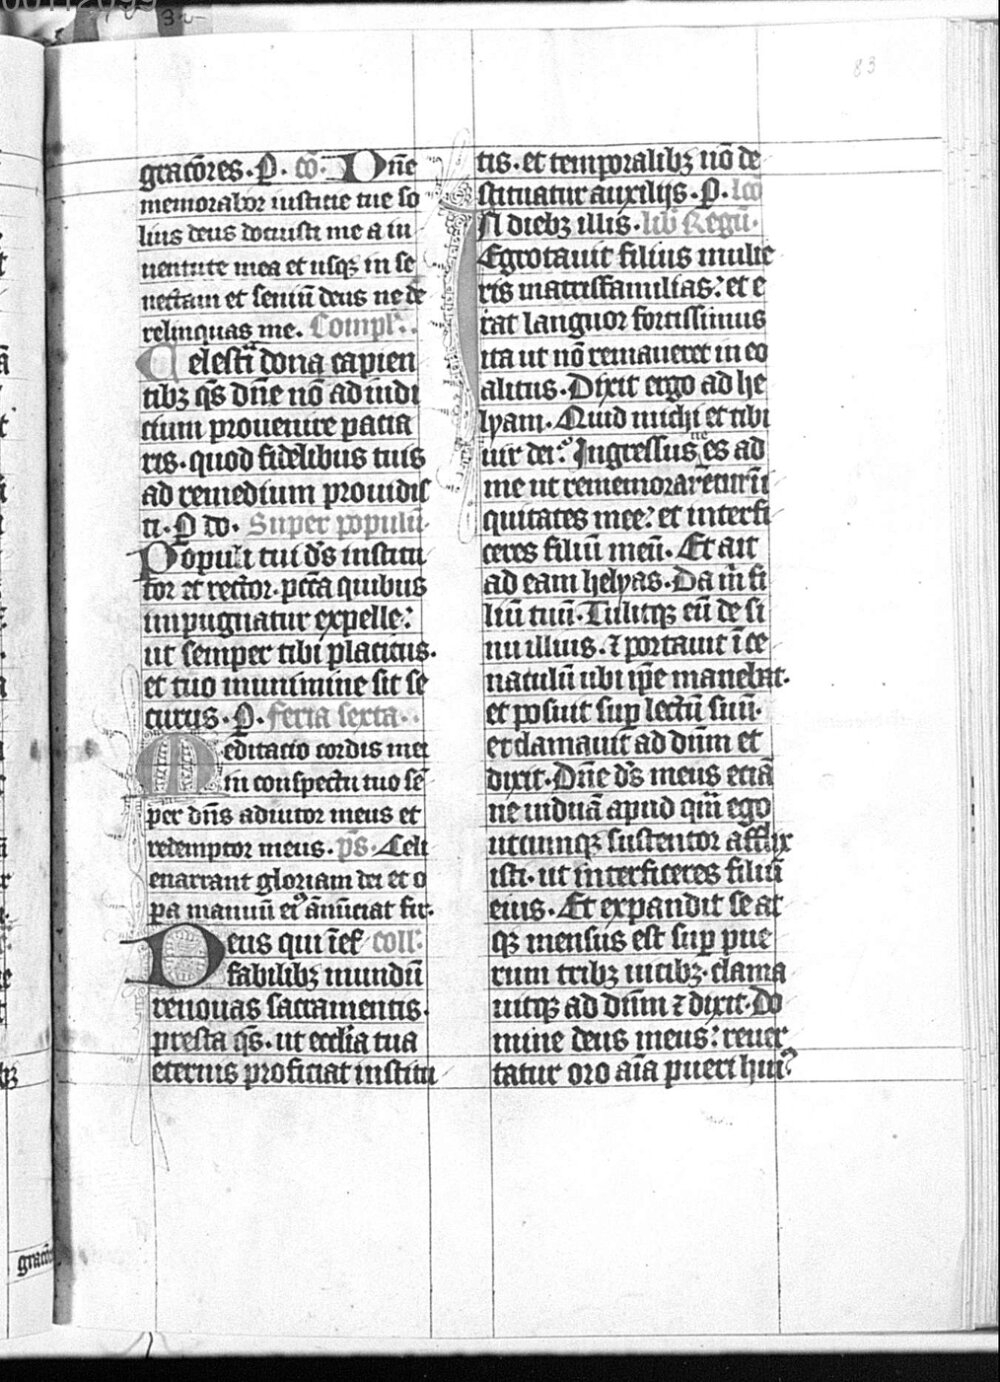 83
gracōres. P. cō. Dn̄e
memorabor iusticie tue so
lius deus docuisti me a iu
uentute mea et usqꝫ in se
nectam et seniū deus ne de
relinquas me. Compl̄.
Celesti dona capien
tibꝫ q̄s dn̄e nō ad iudi
cium prouenire pacia
ris. quod fidelibus tuis
ad remedium prouidis
ti. P do. Super populū.
Populi tui d̄s institu
tor et rector. pcc̄a quibus
impugnatur expelle:
ut semper tibi placitus.
et tuo munimine sit se
curus. P. feria sexta.
Meditacio cordis mei
in conspectu tuo sē
per dn̄s adiutor meus et
redemptor meus. p̄s. Celi
enarrant gloriam dei et o
pa manuū eiꝰ ān̄unciat fir.
Deus qui īef coll̄.
fabilibꝫ mundū
renouas sacramentis.
presta q̄s. ut eccl̄ia tua
eternis proficiat institu
tis. et temporalibꝫ nō de
stituatur auxilijs. P. lcō
In diebꝫ illis. lib̄ Regū.
Egrotauit filius mulie
ris matrisfamilias: et e
rat languor fortissimus
ita ut nō remaneret in eo
alitus. Dixit ergo ad he
lyam. Quid michi et tibi
uir dei: Ingressus es ad
me ut rememorarētur in
quitates mee: et interfi
ceres filiū meū. Et ait
ad eam helyas. Da m̄ fi
liū tuū. Tulitqꝫ eū de si
nu illius. ⁊ portauit ī ce
naculū ubi ip̄e manebat.
et posuit sup lectū suū.
et clamauit ad dn̄m et
dixit. Dn̄e d̄s meus eciā
ne uiduā apud quā ego
utcumqꝫ sustentor afflix
isti. ut interficeres filiū
eius. Et expandit se at
qꝫ mensus est sup pue
rum tribꝫ uicibꝫ. clama
uitqꝫ ad dn̄m ⁊ dixit. Do
mine deus meus: reuer
tatur oro aīa pueri huiꝰ